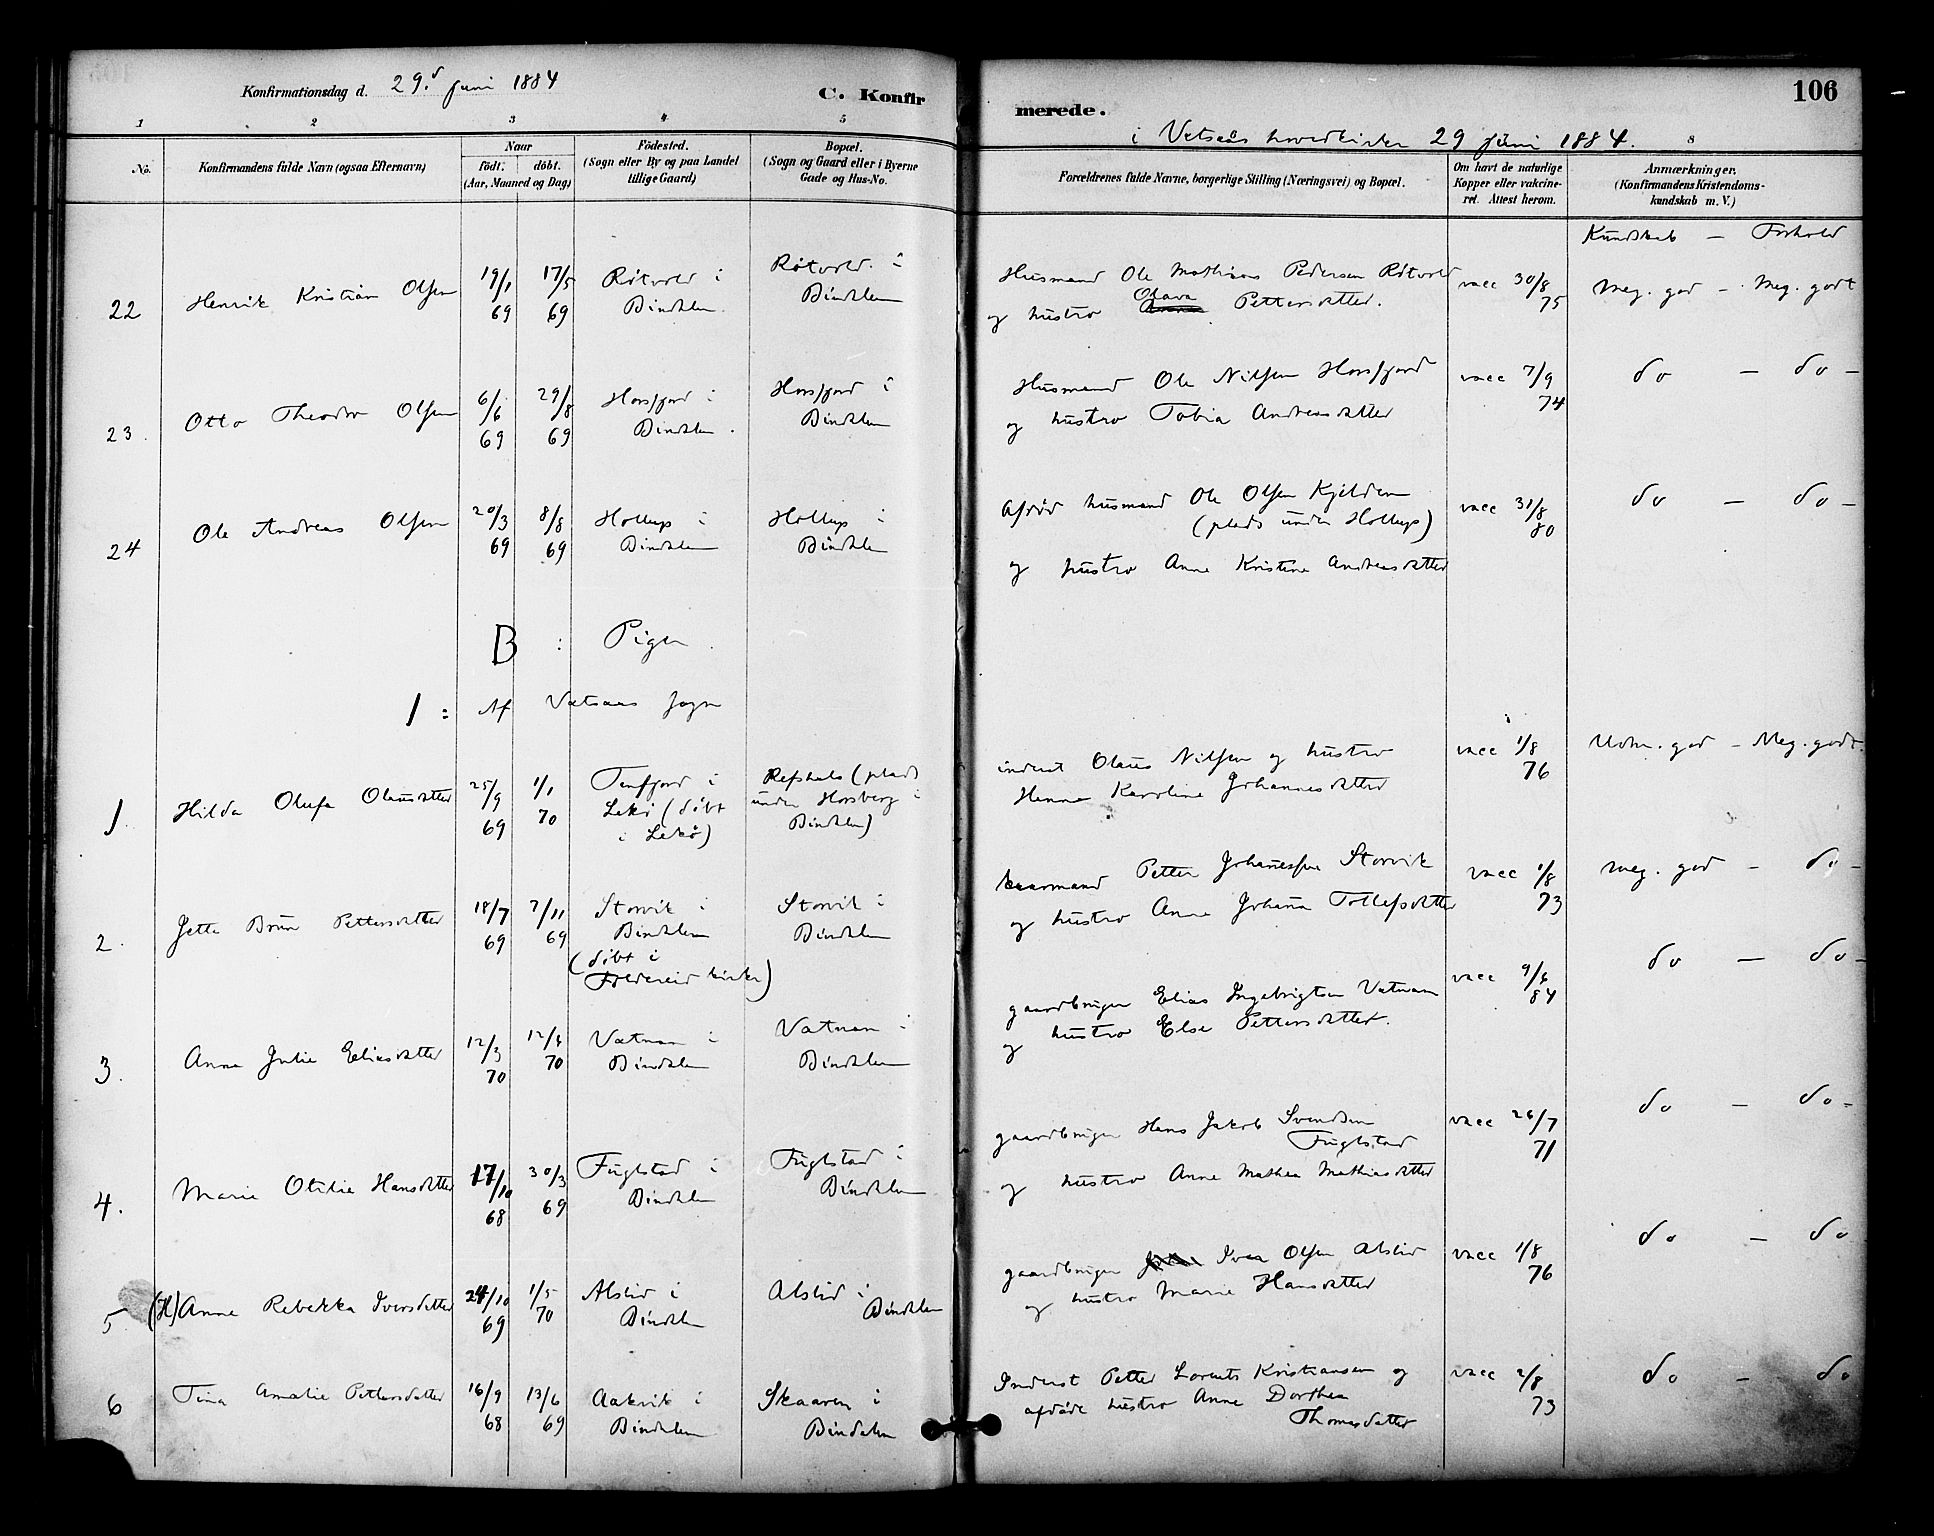 Konfirmationsdag d. 29d Juni 1884
C. Konfir
merede.
106
i Vatsaas hovedkirken 29 Juni 1884.
1 2 3 4 5 8
No.
Konfirmandens fulde Navn (ogsaa Efternavn)
Naar
födt. döbt.
(Aar, Maaned og Dag)
Födested.
(Sogn eller By og paa Landet
tillige Gaard)
Bopæl.
(Sogn og Gaard eller i Byerne
Gade og Hus-No.
Forældrenes fulde Navne, borgerlige Stilling (Næringsvei) og Bopæl.
Om havt de naturlige
Kopper eller vakcine-
ret. Attest herom.
Anmærkninger.
(Konfirmandens Kristendoms-
kundskab m. V.)
Kundskab – Forhold
22 Henrik Kristian Olsen 19/1 69 17/5 69
Røtvold i
Bindalen.
Røtvold i
Bindalen
Husmand Ole Mathias Pedersen Røtvold
og hustro Olava Pettersdatter.
vacc 30/8 75
Meg. god – Meg. godt
23. Otto Theodor Olsen 6/6 69 29/8 69
Horsfjord i
Bindalen.
Horsfjord i
Bindalen
Husmand Ole Nilsen Horsfjord
og hustro Tobia Andreasdatter
vacc 7/9 74
do – do –
24 Ole Andreas Olsen 20/3 69 8/8 69
Hollup i
Bindalen
Hollup i
Bindalen
Afdød husmand Ole Olsen Kjelderen
(plads under Hollup)
og hustro Anne Kristine Andreasdatter
vacc 31/8 80
do – do –
B : Piger.
1 : Af Vatsaas Sogn
1. Hilda Olufa Olausdatter 25/9 69 1/1 70
Terfjord i
Lekø (døbt
i Lekø)
Refshals (plads
under Horsberg i
Bindalen)
inderst Olaus Nilsen og hustro
Henna Karoline Johannesdatter
vacc 1/8 76
Udm. god – Meg. godt.
2. Jette Brun Pettersdatter 18/7 69 7/11 69
Storvik i
Bindalen
(døbt i
Foldereid kirke)
Storvik i
Bindalen
kaarmand Petter Johanessen Storvik
og hustro Anne Johana Tollefsdatter
vacc 1/8 73
meg. god – do –
3. Anna Julie Eliasdatter 12/3 70 12/6 70
Vatnan i
Bindalen
Vatnan i
Bindalen
gaardbruger Elias Ingebrigtsen Vatnan
og hustro Else Pettersdatter.
vacc 9/6 84
do – do –
4. Marie Otilie Hansdatter 17/10 68 30/3 69
Fuglstad i
Bindalen
Fuglstad i
Bindalen
gaardbruger Hans Jakob Svendsen
Fuglstad
og hustro Anne Mathea Mathiasdatter
vacc 26/7 71
do – do –
5 (H) Anne Rebekka Iversdatter 24/10 69 1/5 70
Alslid i
Bindalen
Alslid i
Bindalen
gaardbruger Iver Olsen Alslid
og hustro Marie Hansdatter
vacc 1/8 76
do – do
6 Tina Amalie Pettersdatter 16/9 68 13/6 69
Aakvik i
Bindalen
Skaaren i
Bindalen
Inderst Petter Lorents Kristiansen og
afdøde hustro Anne Dorthea
Thomasdatter
vacc 2/8 73
do – do